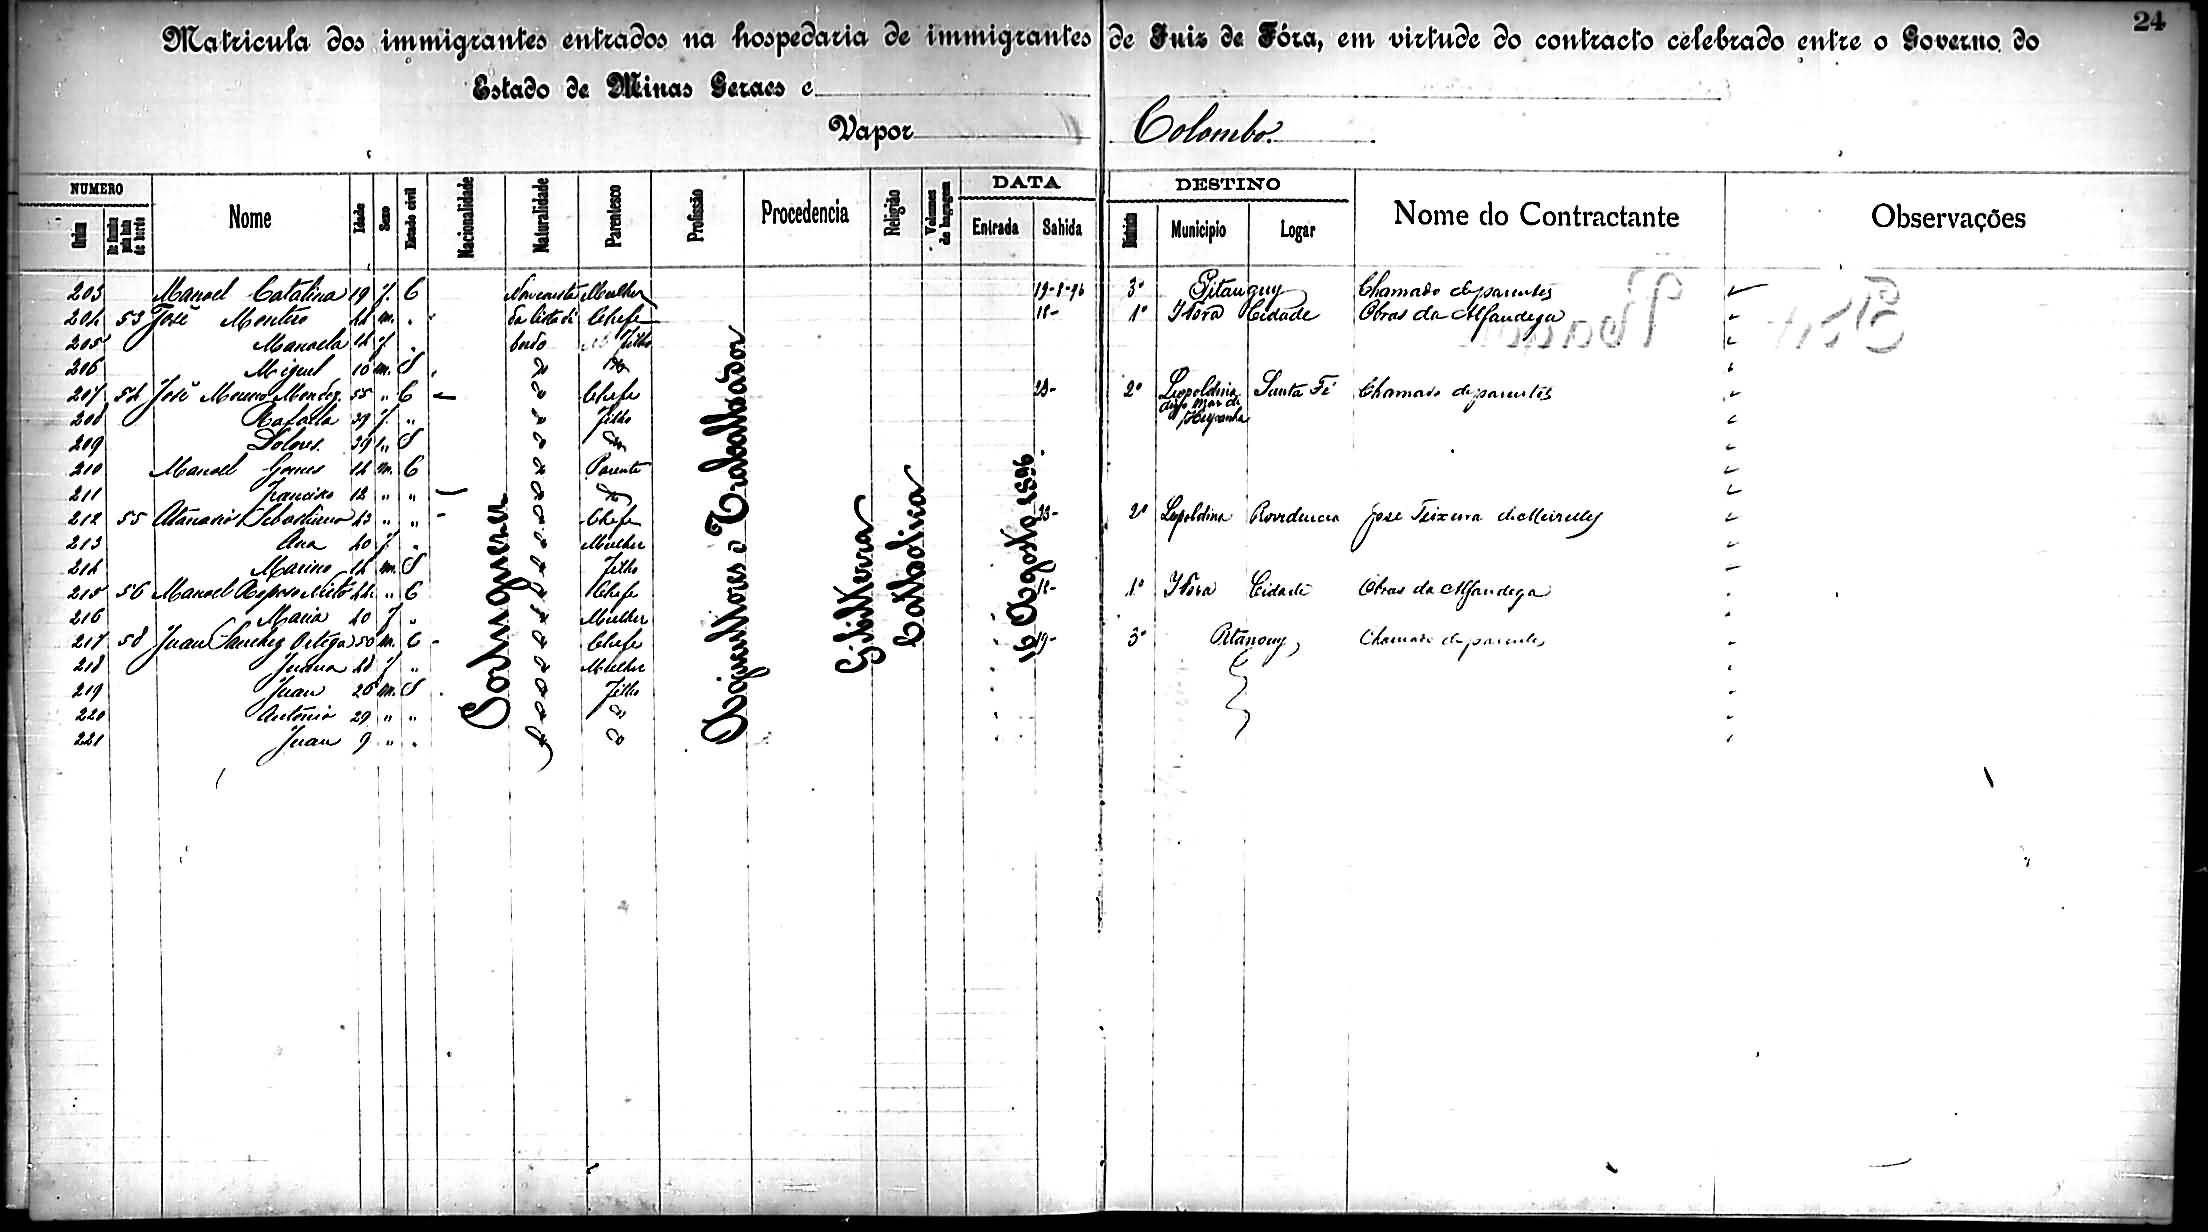 24
Matricula dos immigrantes entrados na hospedaria de immigrantes de Juiz de Fóra, em virtude do contracto celebrado entre o Governo do
Estado de Minas Geraes e
Vapor Colombo.
NUMERO Nome Idade Sexo Estado civil Nacionalidade Naturalidade Parentesco Profissão Procedencia Religião Volumes de bagagem DATA DESTINO Nome do Contractante Observações
Ordem Entrada Sahida Districto Municipio Logar
203 Manoel Catalina 19 f. C Não consta Mulher 19-8-96 3º Pitanguy Chamado de parentes
204 53 José Montero 44 m. " da lista de Chefe 18- 1º J. Fóra Cidade Obras da Alfandega
205 Manoela 14 f. " bordo Filho
206 Miguel 10 m. S
207 54 José Moreno Mendez 55 " C Chefe 23- 2º Leopoldina Santa Fé Chamado de parentes
digo Mar de
Hespanha
208 Rafaella 39 f. " Filho
209 Dolores 39 " S
210 Manoel Gomes 14 m. C Parente
211 Francisco 12 " "
212 55 Sebastiano 43 " " Chefe 23- 2º Leopoldina Providencia José Teixeira de Meirelles
213 Ana 40 f. " Mulher
214 Marino 14 m. S Filho
215 56 Manoel Neto 44 " C Chefe 18- 1º J. Fóra Cidade Obras da Alfandega
216 Maria 40 f. " Mulher
217 58 Juan Sanchez Ortega 50 m. C Chefe 19- 3º Pitanguy Chamado de parentes
218 Juana 48 f. " Mulher
219 Juan 26 m. S Filho
220 Antonio 29 " "
221 Juan 9 " "
Portugueza
Agricultores e Trabalhador
Gibilterra
Catholica
16 Agosto 1896